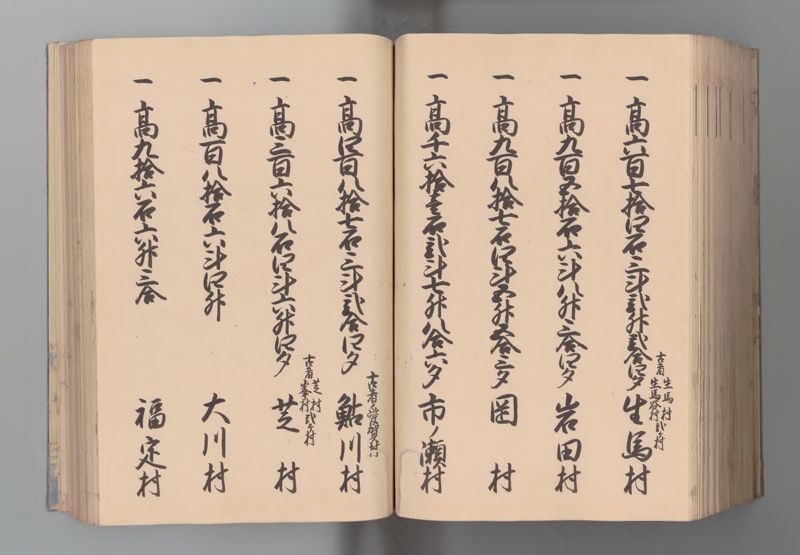 一 高六百七拾四石三斗弐升弐合四夕 生馬村
古者 生馬村 生馬谷村 弐ヶ村
一 高九百五拾石六斗八升三合四夕 岩田村
一 高九百八拾七石四斗五升五合三夕 岡村
一 高千六拾壱石弐斗七升八合六夕 市ノ瀬村
一 高四百八拾七石三斗弐合四夕 鮎川村
古者
一 高三百六拾八石四斗六升四夕 芝村
古者 芝村 峯村 弐ヶ村
一 高百八拾石六斗四升 大川村
一 高九拾六石六升三合 福定村